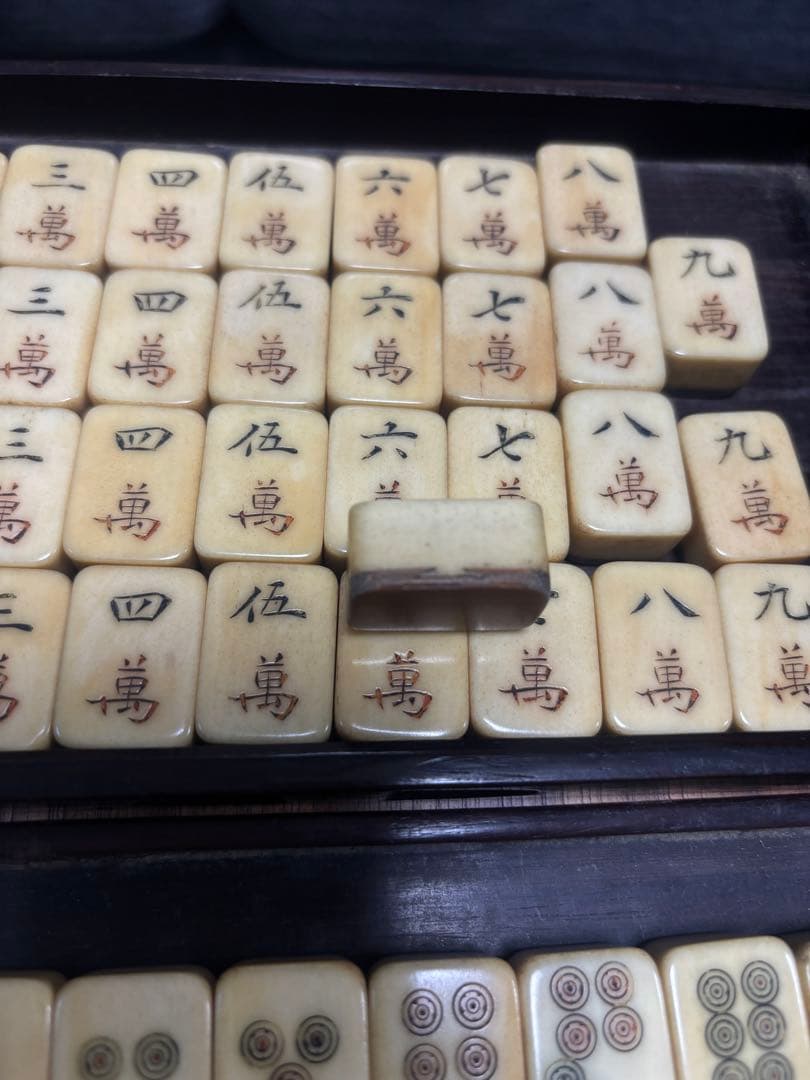 三 四 伍 六 七 八
萬 萬 萬 萬 萬 萬
三 四 伍 六 七 八 九
萬 萬 萬 萬 萬 萬 萬
三 四 伍 六 七 八 九
萬 萬 萬 萬 萬 萬 萬
三 四 伍 八 九
萬 萬 萬 萬 萬 萬 萬